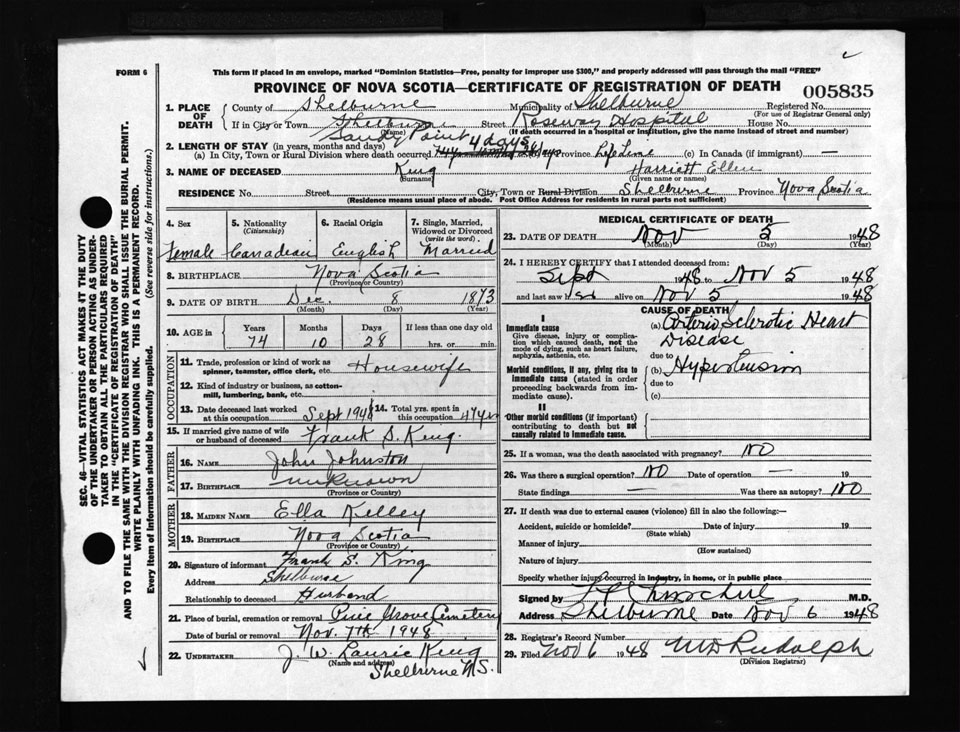 FORM 6
This form if placed in an envelope, marked "Dominion Statistics—Free, penalty for improper use $300," and properly addressed will pass through the mail "FREE"
PROVINCE OF NOVA SCOTIA—CERTIFICATE OF REGISTRATION OF DEATH
005835
1. PLACE OF DEATH
County of Shelburne Municipality of Shelburne Registered No.
(For use of Registrar General only)
If in City or Town Shelburne Street Roseway Hospital House No.
(Name) (If death occurred in a hospital or institution, give the name instead of street and number)
Sandy Point
2. LENGTH OF STAY (in years, months and days) 4 days
(a) In City, Town or Rural Division where death occurred Province Life Time (c) In Canada (if immigrant) —
3. NAME OF DECEASED King Harriett Ellen
(Surname) (Given name or names)
RESIDENCE No. Street City, Town or Rural Division Shelburne Province Nova Scotia
(Residence means usual place of abode. Post Office Address for residents in rural parts not sufficient)
4. Sex
Female
5. Nationality
(Citizenship)
Canadian
6. Racial Origin
English
7. Single, Married, Widowed or Divorced
(write the word)
Married
8. BIRTHPLACE Nova Scotia
(Province or Country)
9. DATE OF BIRTH Dec. 8 1873
(Month) (Day) (Year)
10. AGE in Years Months Days If less than one day old
74 10 28 hrs. or min.
OCCUPATION
11. Trade, profession or kind of work as spinner, teamster, office clerk, etc. Housewife
12. Kind of industry or business, as cotton-mill, lumbering, bank, etc.
13. Date deceased last worked at this occupation Sept 1948
14. Total yrs. spent in this occupation
15. If married give name of wife or husband of deceased Frank S. King.
FATHER
16. NAME John Johnston
17. BIRTHPLACE unknown
(Province or Country)
MOTHER
18. MAIDEN NAME Ella Kelley
19. BIRTHPLACE Nova Scotia
(Province or Country)
20. Signature of informant Frank S. King
Address Shelburne
Relationship to deceased Husband
21. Place of burial, cremation or removal Pine Grove Cemetery
Date of burial or removal Nov. 7th 1948.
22. UNDERTAKER J. W. Laurie King
(Name and address)
Shelburne N.S.
MEDICAL CERTIFICATE OF DEATH
23. DATE OF DEATH Nov 5 1948
(Month) (Day) (Year)
24. I HEREBY CERTIFY that I attended deceased from:
Sept 1948 to Nov 5 1948
and last saw her alive on Nov 5 1948
CAUSE OF DEATH
I
Immediate cause
Give disease, injury or complication which caused death, not the mode of dying, such as heart failure, asphyxia, asthenia, etc.
(a) Arterio Sclerotic Heart Disease
due to
Morbid conditions, if any, giving rise to immediate cause (stated in order proceeding backwards from immediate cause).
(b) Hypertension
due to
(c)
II
Other morbid conditions (if important) contributing to death but not causally related to immediate cause.
25. If a woman, was the death associated with pregnancy? NO
26. Was there a surgical operation? NO Date of operation — 19
State findings — Was there an autopsy? NO
27. If death was due to external causes (violence) fill in also the following:—
Accident, suicide or homicide? Date of injury 19
(State which)
Manner of injury
(How sustained)
Nature of injury
Specify whether injury occurred in industry, in home, or in public place
Signed by M.D.
Address Shelburne Date Nov 6 1948
28. Registrar's Record Number
29. Filed Nov 6 1948 Rudolph
(Division Registrar)
SEC. 46—VITAL STATISTICS ACT MAKES IT THE DUTY
OF THE UNDERTAKER OR PERSON ACTING AS UNDER-
TAKER TO OBTAIN ALL THE PARTICULARS REQUIRED
IN THE "CERTIFICATE OF REGISTRATION OF DEATH"
AND TO FILE THE SAME WITH THE DIVISION REGISTRAR WHO SHALL ISSUE THE BURIAL PERMIT.
WRITE PLAINLY WITH UNFADING INK. THIS IS A PERMANENT RECORD.
Every item of information should be carefully supplied. (See reverse side for instructions.)